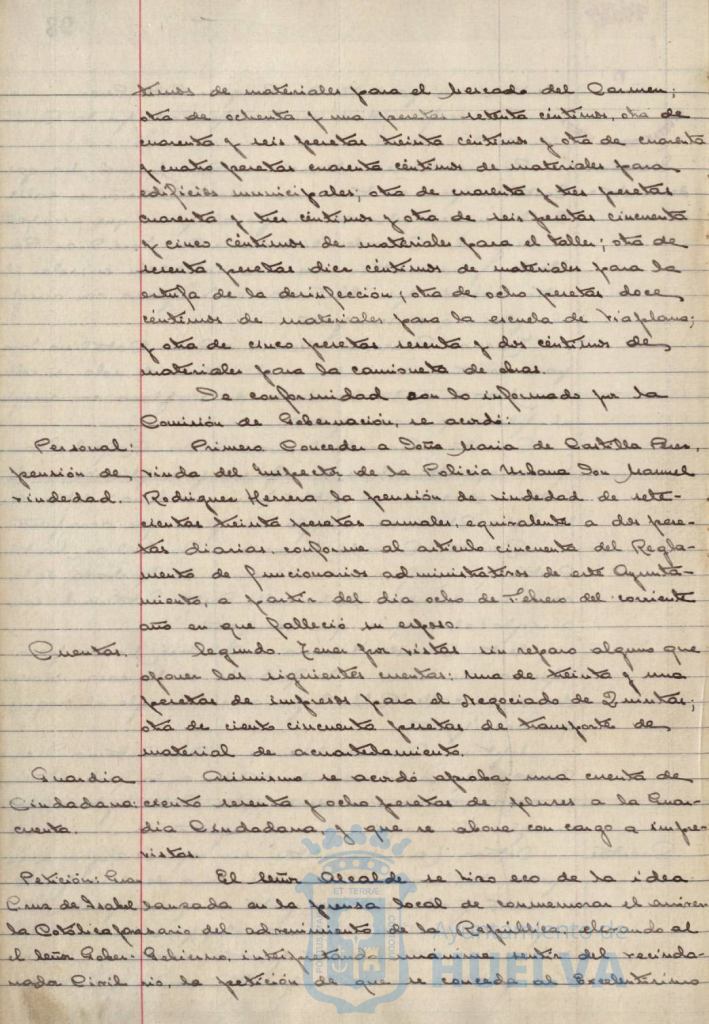 timos de materiales para el Mercado del Carmen;
otra de ochenta y una pesetas setenta céntimos, otra de
cuarenta y seis pesetas treinta céntimos y otra de cuarenta
y cuatro pesetas cuarenta céntimos de materiales para
edificios municipales; otra de cuarenta y tres pesetas
cuarenta y tres céntimos y otra de seis pesetas cincuenta
y cinco céntimos de materiales para el taller; otra de
sesenta pesetas diez céntimos de materiales para la
estufa de la desinfección; otra de ocho pesetas doce
céntimos de materiales para la escuela de Viaplana;
y otra de cinco pesetas sesenta y dos céntimos de
materiales para la camioneta de obras.
De conformidad con lo informado por la
Comisión de Gobernación, se acordó:
Personal: Primero. Conceder a Doña Maria de Castilla
pensión de viuda del Inspector de la Policia Urbana Don Manuel
viudedad. Rodriguez Herrera la pensión de viudedad de sete-
cientas treinta pesetas anuales, equivalente a dos pese-
tas diarias, conforme al artículo cincuenta del Regla-
mento de funcionarios administrativos de este Ayunta-
miento, a partir del dia ocho de Febrero del corriente
año en que falleció su esposo.
Cuentas. Segundo. Tener por vistas sin reparo alguno que
oponer las siguientes cuentas: una de treinta y una
pesetas de impresos para el Negociado de Quintas;
otra de ciento cincuenta pesetas de transporte de
material de acuartelamiento.
Guardia Asimismo se acordó aprobar una cuenta de
Ciudadana: ciento sesenta y ocho pesetas de pluses a la Guar-
cuenta. dia Ciudadana, y que se abone con cargo a impre-
vistas.
Petición: Gran El Señor Alcalde se hizo eco de la idea
Cruz de Isabel lanzada en la prensa local de conmemorar el aniver-
la Católica para sario del advenimiento de la República elevando al
el Señor Gober- Gobierno, interpretando unánime sentir del vecinda-
nado Civil rio, la petición de que se conceda al Excelentisimo
Ayuntamiento de
HUELVA